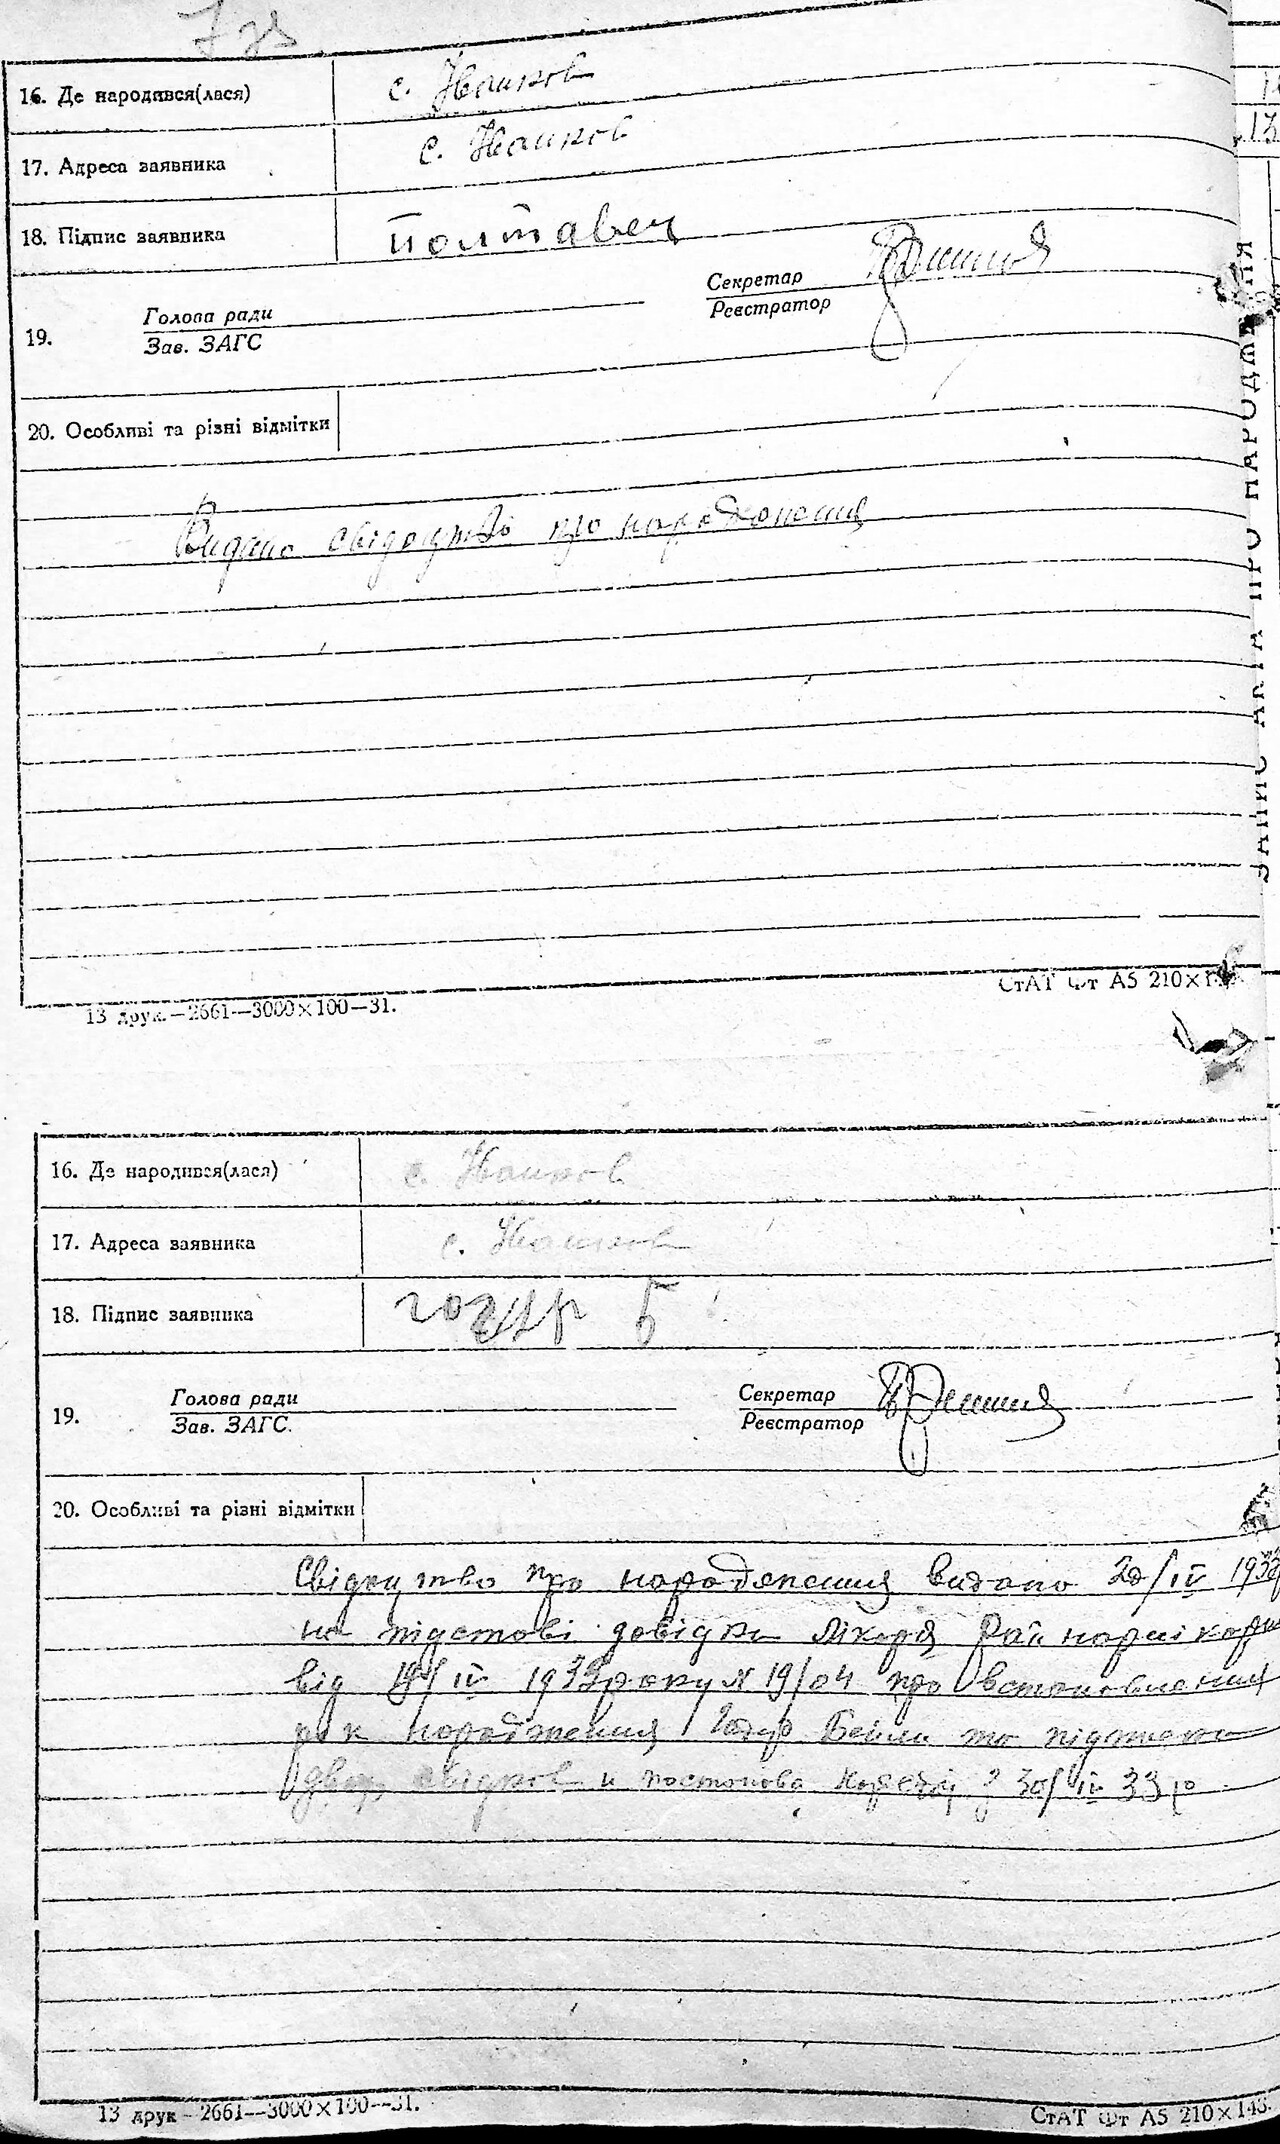 16. Де народився(лася) с. Іванков
17. Адреса заявника с. Іванков
18. Підпис заявника Полтавец
Секретар
Реєстратор
Голова ради
19.
Зав. ЗАГС
20. Особливі та різні відмітки
Видано свідоцтво про народження
ЗАПИС АКТА ПРО НАРОДЖЕННЯ
СтАТ Фт А5 210×14
13 друк.—2661—3000×100—31.
16. Де народився(лася) с. Іванков
17. Адреса заявника с. Іванков
18. Підпис заявника Б
Голова ради
Секретар
19.
Зав. ЗАГС.
Реєстратор
20. Особливі та різні відмітки
Свідоцтво про народження видано 20/IV 1933
на підставі довідки лікаря Рай
від IV 1933 року № 19/04 про встановлення
рік народження Бейли та
двох свідков и постанова з 30/IV 33 р
13 друк—2661—3000×100—31.
СтАТ Фт А5 210×148.